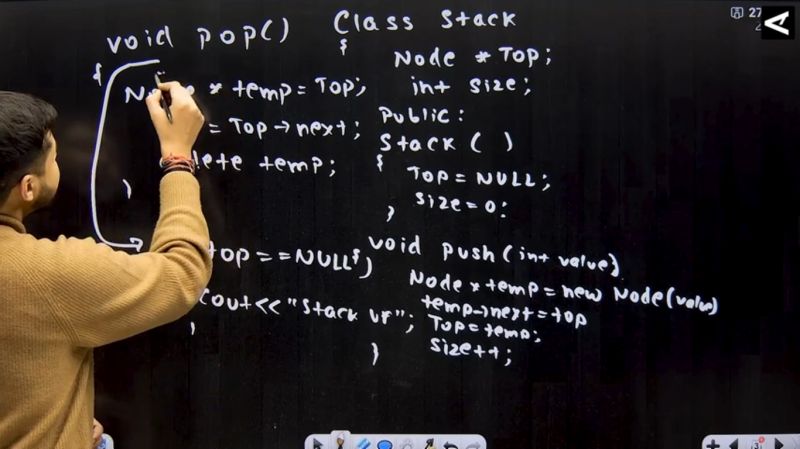 void pop()
{
* temp = Top;
= Top → next;
temp;
}
top == NULL)
{
cout << "Stack UF";
}
Class Stack
{
Node * Top;
int size;
Public:
Stack ( )
{
Top = NULL;
size = 0;
}
void push (int value)
{
Node * temp = new Node(value)
temp → next = top
Top = temp;
size++;
}
27